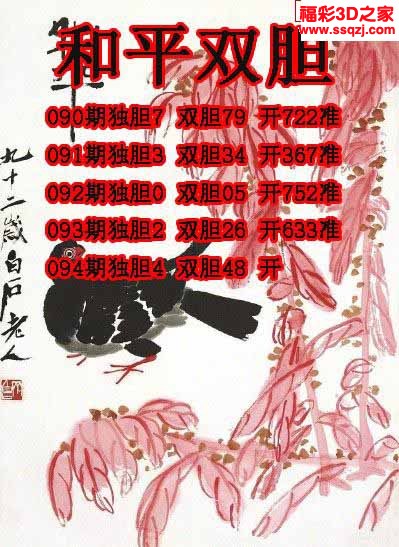 福彩3D之家
www.ssqzj.com
和平双胆
090期独胆7 双胆79 开722准
091期独胆3 双胆34 开367准
092期独胆0 双胆05 开752准
093期独胆2 双胆26 开633准
094期独胆4 双胆48 开
九十二岁白石老人